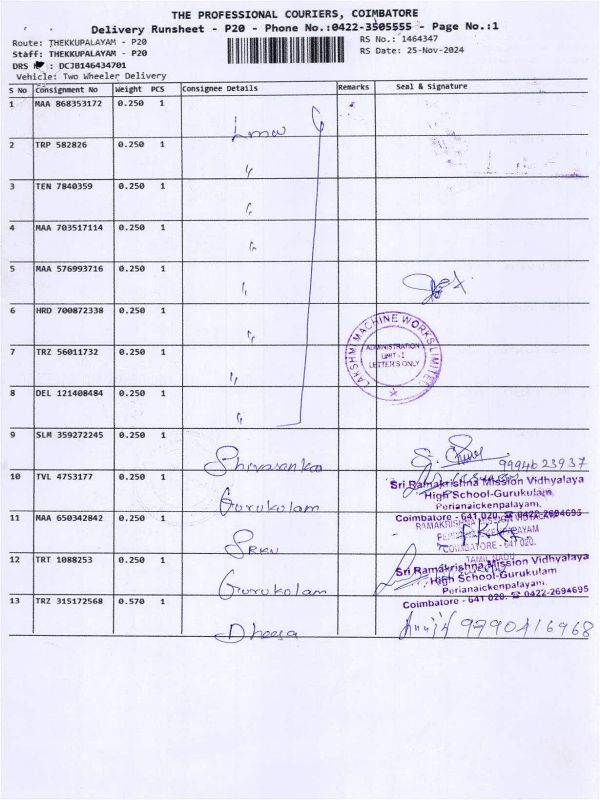 THE PROFESSIONAL COURIERS, COIMBATORE
Delivery Runsheet - P20 - Phone No.:0422-3505555 - Page No.:1
Route: THEKKUPALAYAM - P20
RS No.: 1464347
Staff: THEKKUPALAYAM - P20
RS Date: 25-Nov-2024
DRS : DCJB146434701
Vehicle: Two Wheeler Delivery
S No Consignment No Weight PCS Consignee Details Remarks Seal & Signature
1 MAA 868353172 0.250 1
2 TRP 582826 0.250 1 "
3 TEN 7840359 0.250 1 "
4 MAA 703517114 0.250 1 "
5 MAA 576993716 0.250 1 "
6 HRD 700872338 0.250 1 "
LAKSHMI MACHINE WORKS LIMITED
ADMINISTRATION
UNIT-1
LETTER'S ONLY
7 TRZ 56011732 0.250 1 "
8 DEL 121408484 0.250 1 "
9 SLM 359272245 0.250 1 Shivasankar
9994623937
10 TVL 4753177 0.250 1 Gurukulam
Sri Ramakrishna Mission Vidhyalaya
High School-Gurukulam
Perianaickenpalayam,
Coimbatore - 641 020. ☎ 0422-2694695
11 MAA 650342842 0.250 1
RAMAKRISHNA MISSION VIDYALAYA
COIMBATORE - 641 020.
TAMIL NADU
12 TRT 1088253 0.250 1 Gurukulam
Sri Ramakrishna Mission Vidhyalaya
High School-Gurukulam
Perianaickenpalayam,
Coimbatore - 641 020. ☎ 0422-2694695
13 TRZ 315172568 0.570 1
9790416968